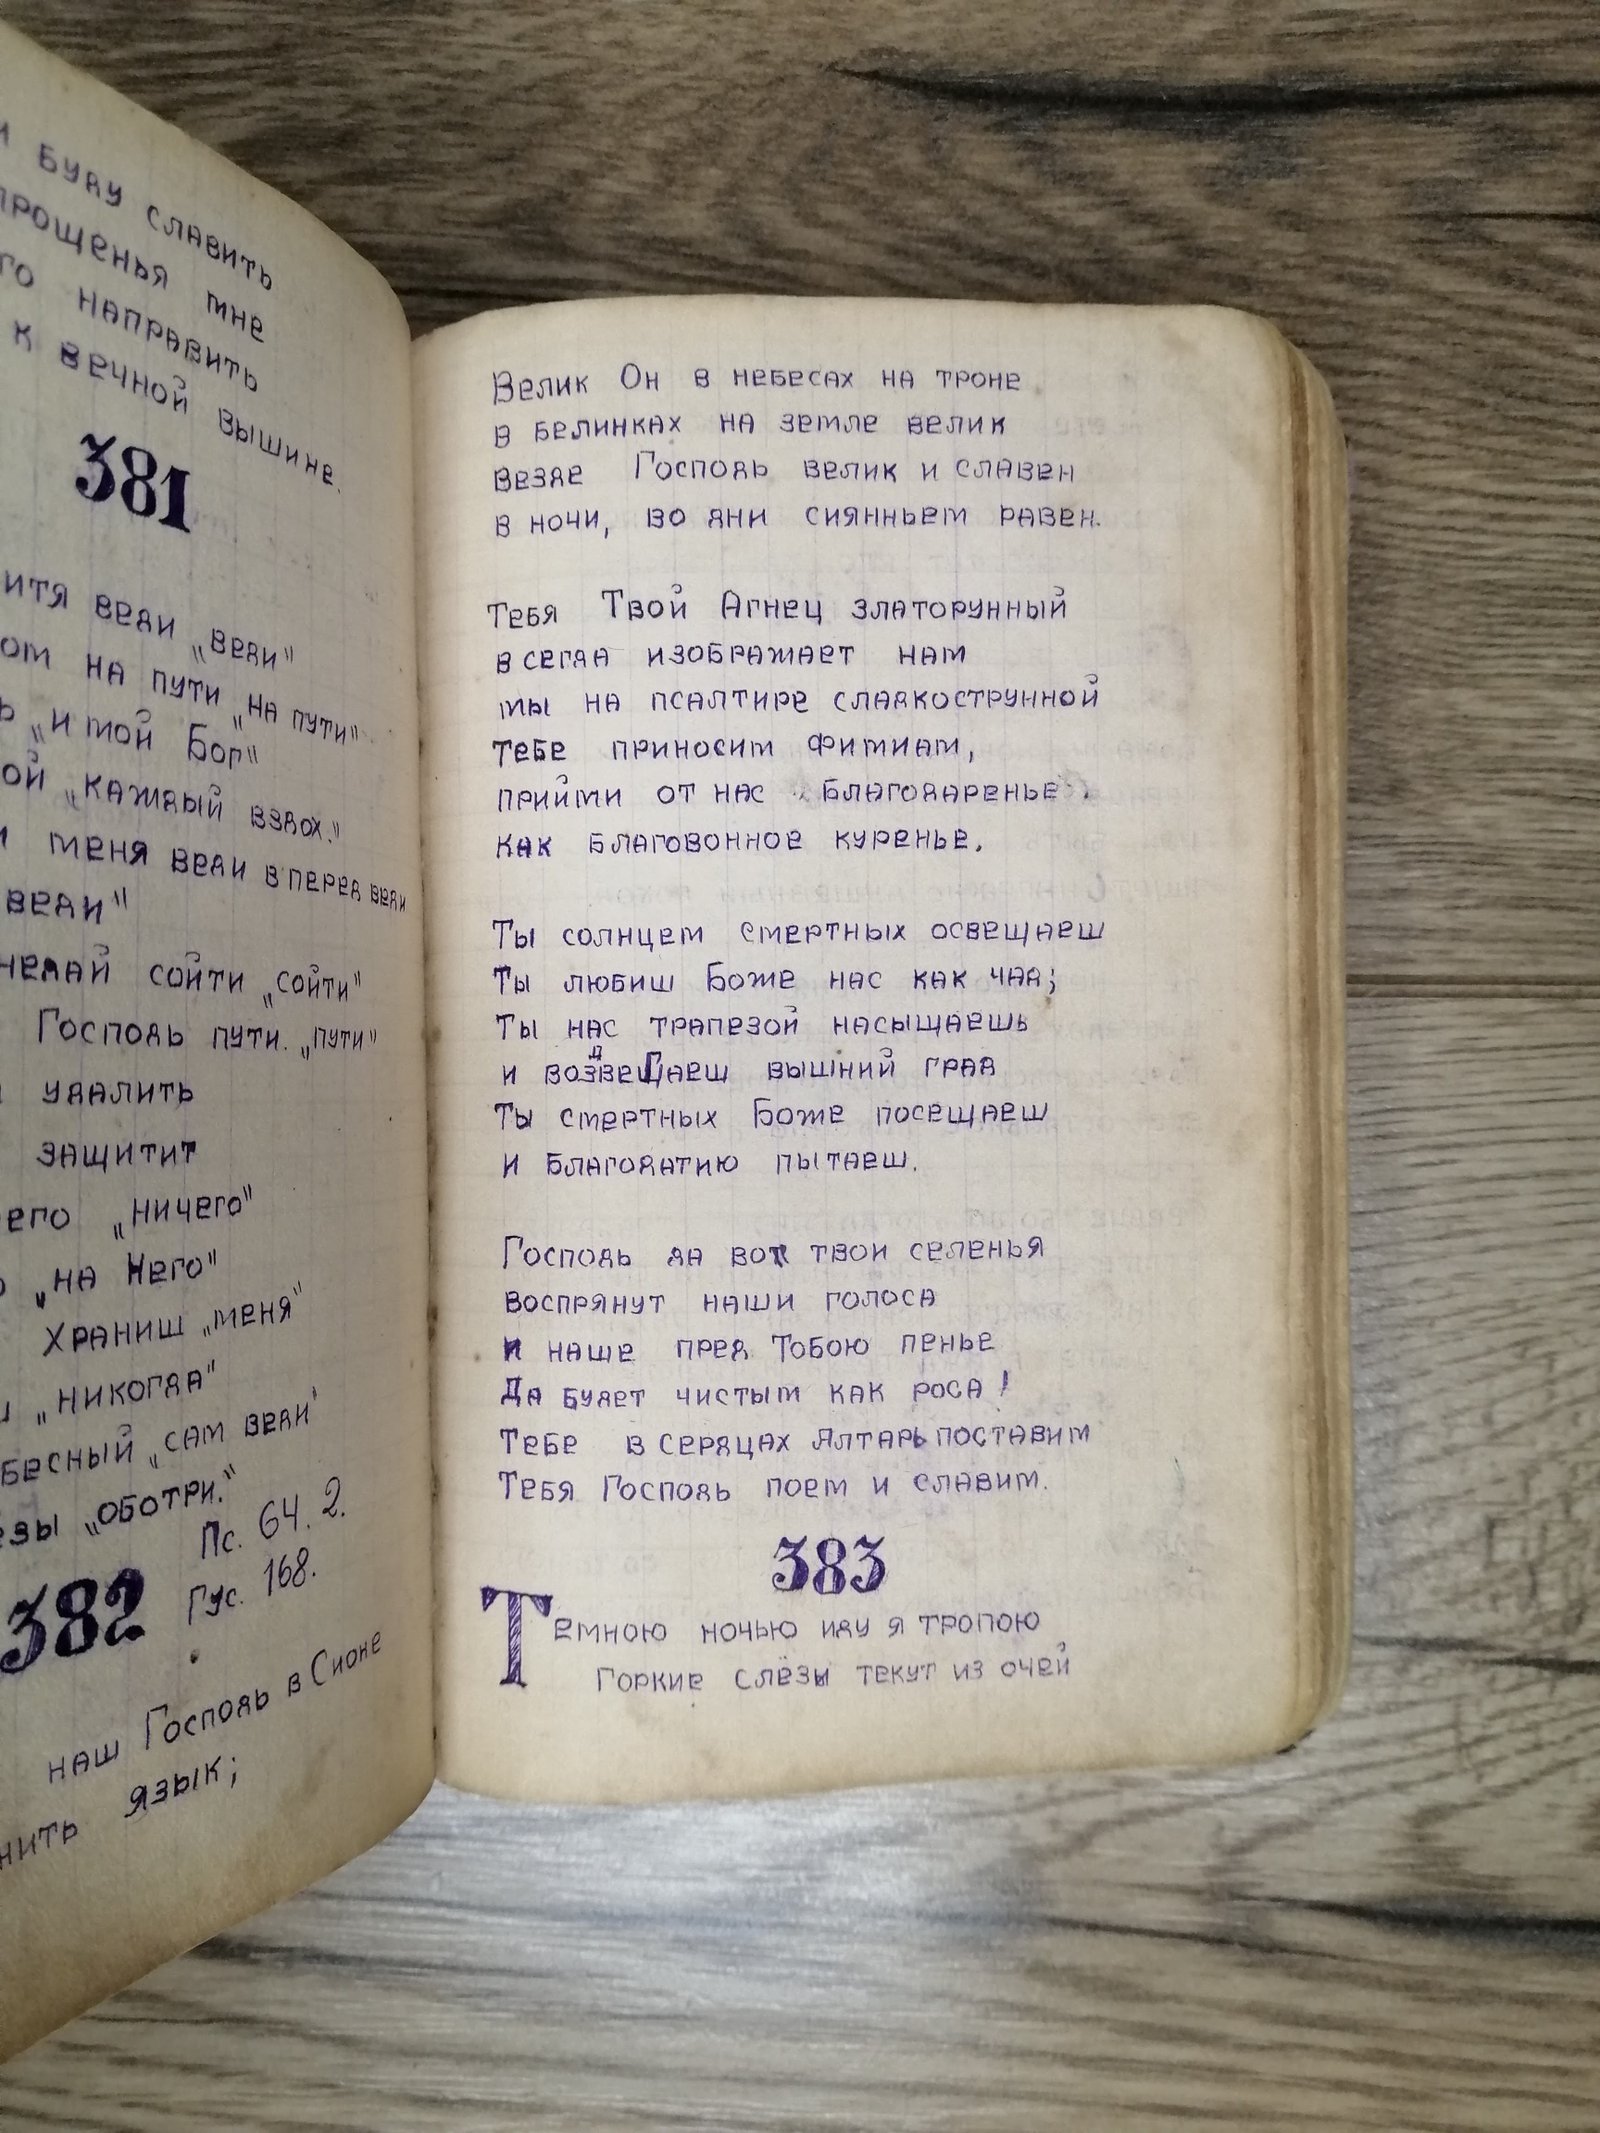 буду славить
прощенья мне
направить
к вечной вышине.
381
веди „веди"
на пути „на пути"
„и мой Бог"
„каждый вздох."
меня веди вперед веди
веди"
недай сойти „сойти"
Господь пути. „пути"
удалить
защитит
„ничего"
„на Него"
Храниш „меня"
„никогда"
„сам веди"
„оботри."
Пс. 64. 2.
382 Гус. 168.
наш Господь в Сионе
язык;
Велик Он в небесах на троне
в белинках на земле велик
везде Господь велик и славен
в ночи, во дни сиянньем равен.
Тебя Твой Агнец златорунный
всегда изображает нам
мы на псалтире сладкострунной
тебе приносим фимиам,
прийми от нас благодаренье
как благовонное куренье.
Ты солнцем смертных освещаеш
Ты любиш Боже нас как чад;
Ты нас трапезой насыщаешь
и вышний град
Ты смертных Боже посещаеш
и благодатию пытаеш.
Господь да во твои селенья
воспрянут наши голоса
и наше пред Тобою пенье
Да будет чистым как роса!
Тебе в сердцах Алтарь поставим
Тебя Господь поем и славим.
383
Темною ночью иду я тропою
Горкие слёзы текут из очей